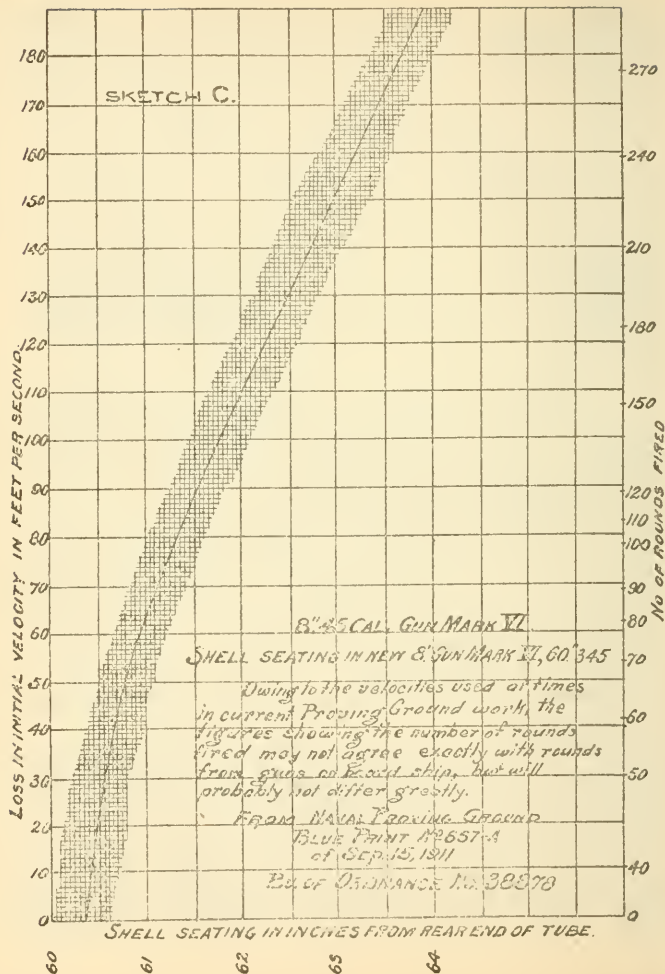 SKETCH C.
LOSS IN INITIAL VELOCITY IN FEET PER SECOND.
180
170
160
150
140
130
120
110
100
90
80
70
60
50
40
30
20
10
0
270
240
210
180
150
120
110
100
90
80
70
60
50
40
0
NO OF ROUNDS FIRED
8" 45 CAL. GUN MARK VI
SHELL SEATING IN NEW 8" GUN MARK VI, 60."345
Owing to the velocities used at times
in current Proving Ground work, the
figures showing the number of rounds
fired may not agree exactly with rounds
from guns on board ship, but will
probably not differ greatly.
FROM NAVAL PROVING GROUND
BLUE PRINT No 657-A
of Sep. 15, 1911
BU. OF ORDNANCE No. 38878
SHELL SEATING IN INCHES FROM REAR END OF TUBE.
60
61
62
65
64